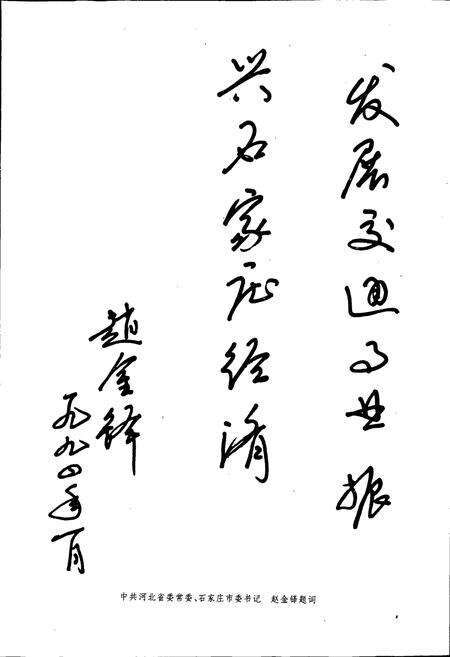 发展交通事业振
兴石家庄经济
赵金铎
一九九四年一月
中共河北省委常委、石家庄市委书记 赵金铎题词